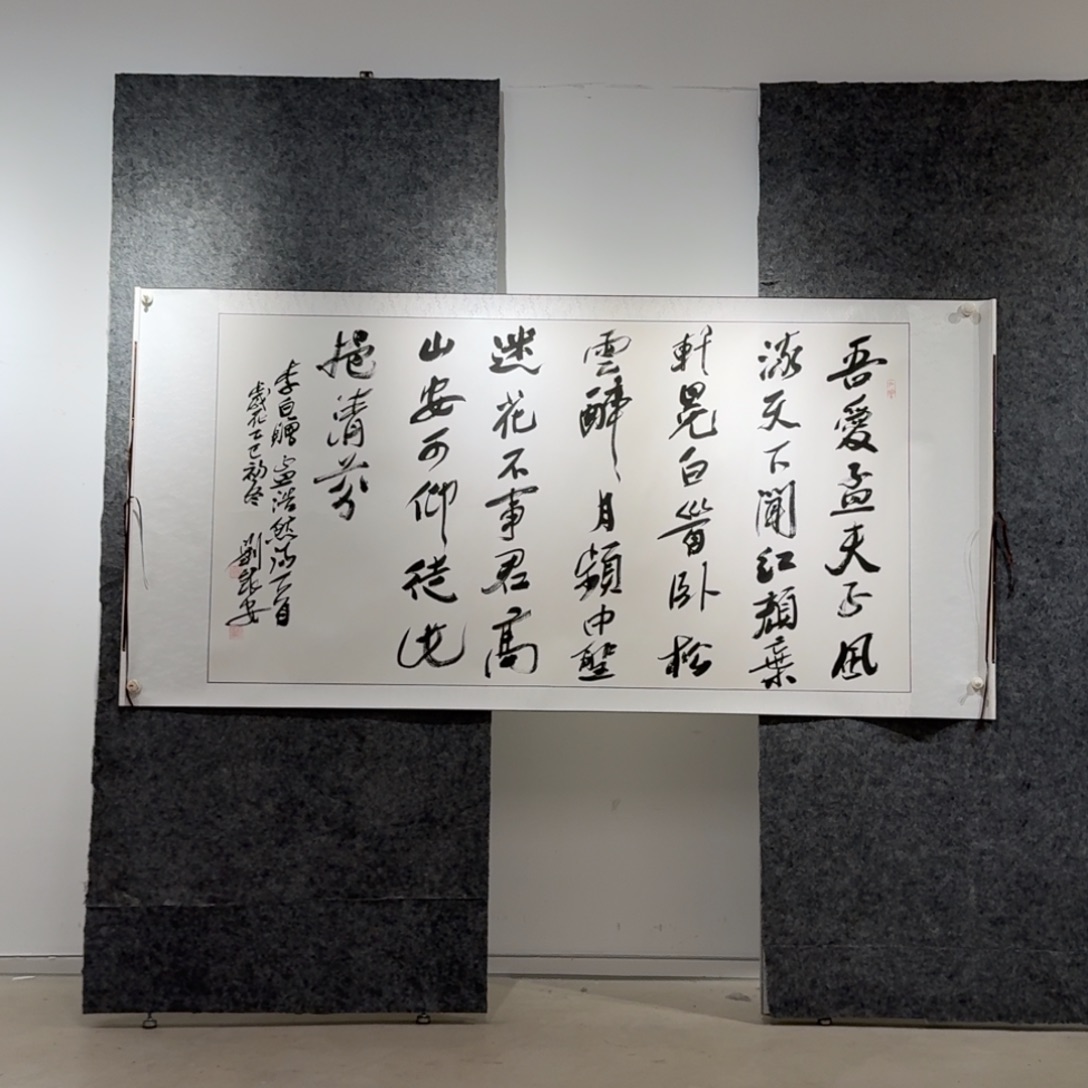 吾愛孟夫子風
流天下聞紅顏棄
軒冕白首臥松
雲醉月頻中聖
迷花不事君高
山安可仰徒此
挹清芬
李白贈孟浩然詩一首
歲在乙巳初冬 劉安